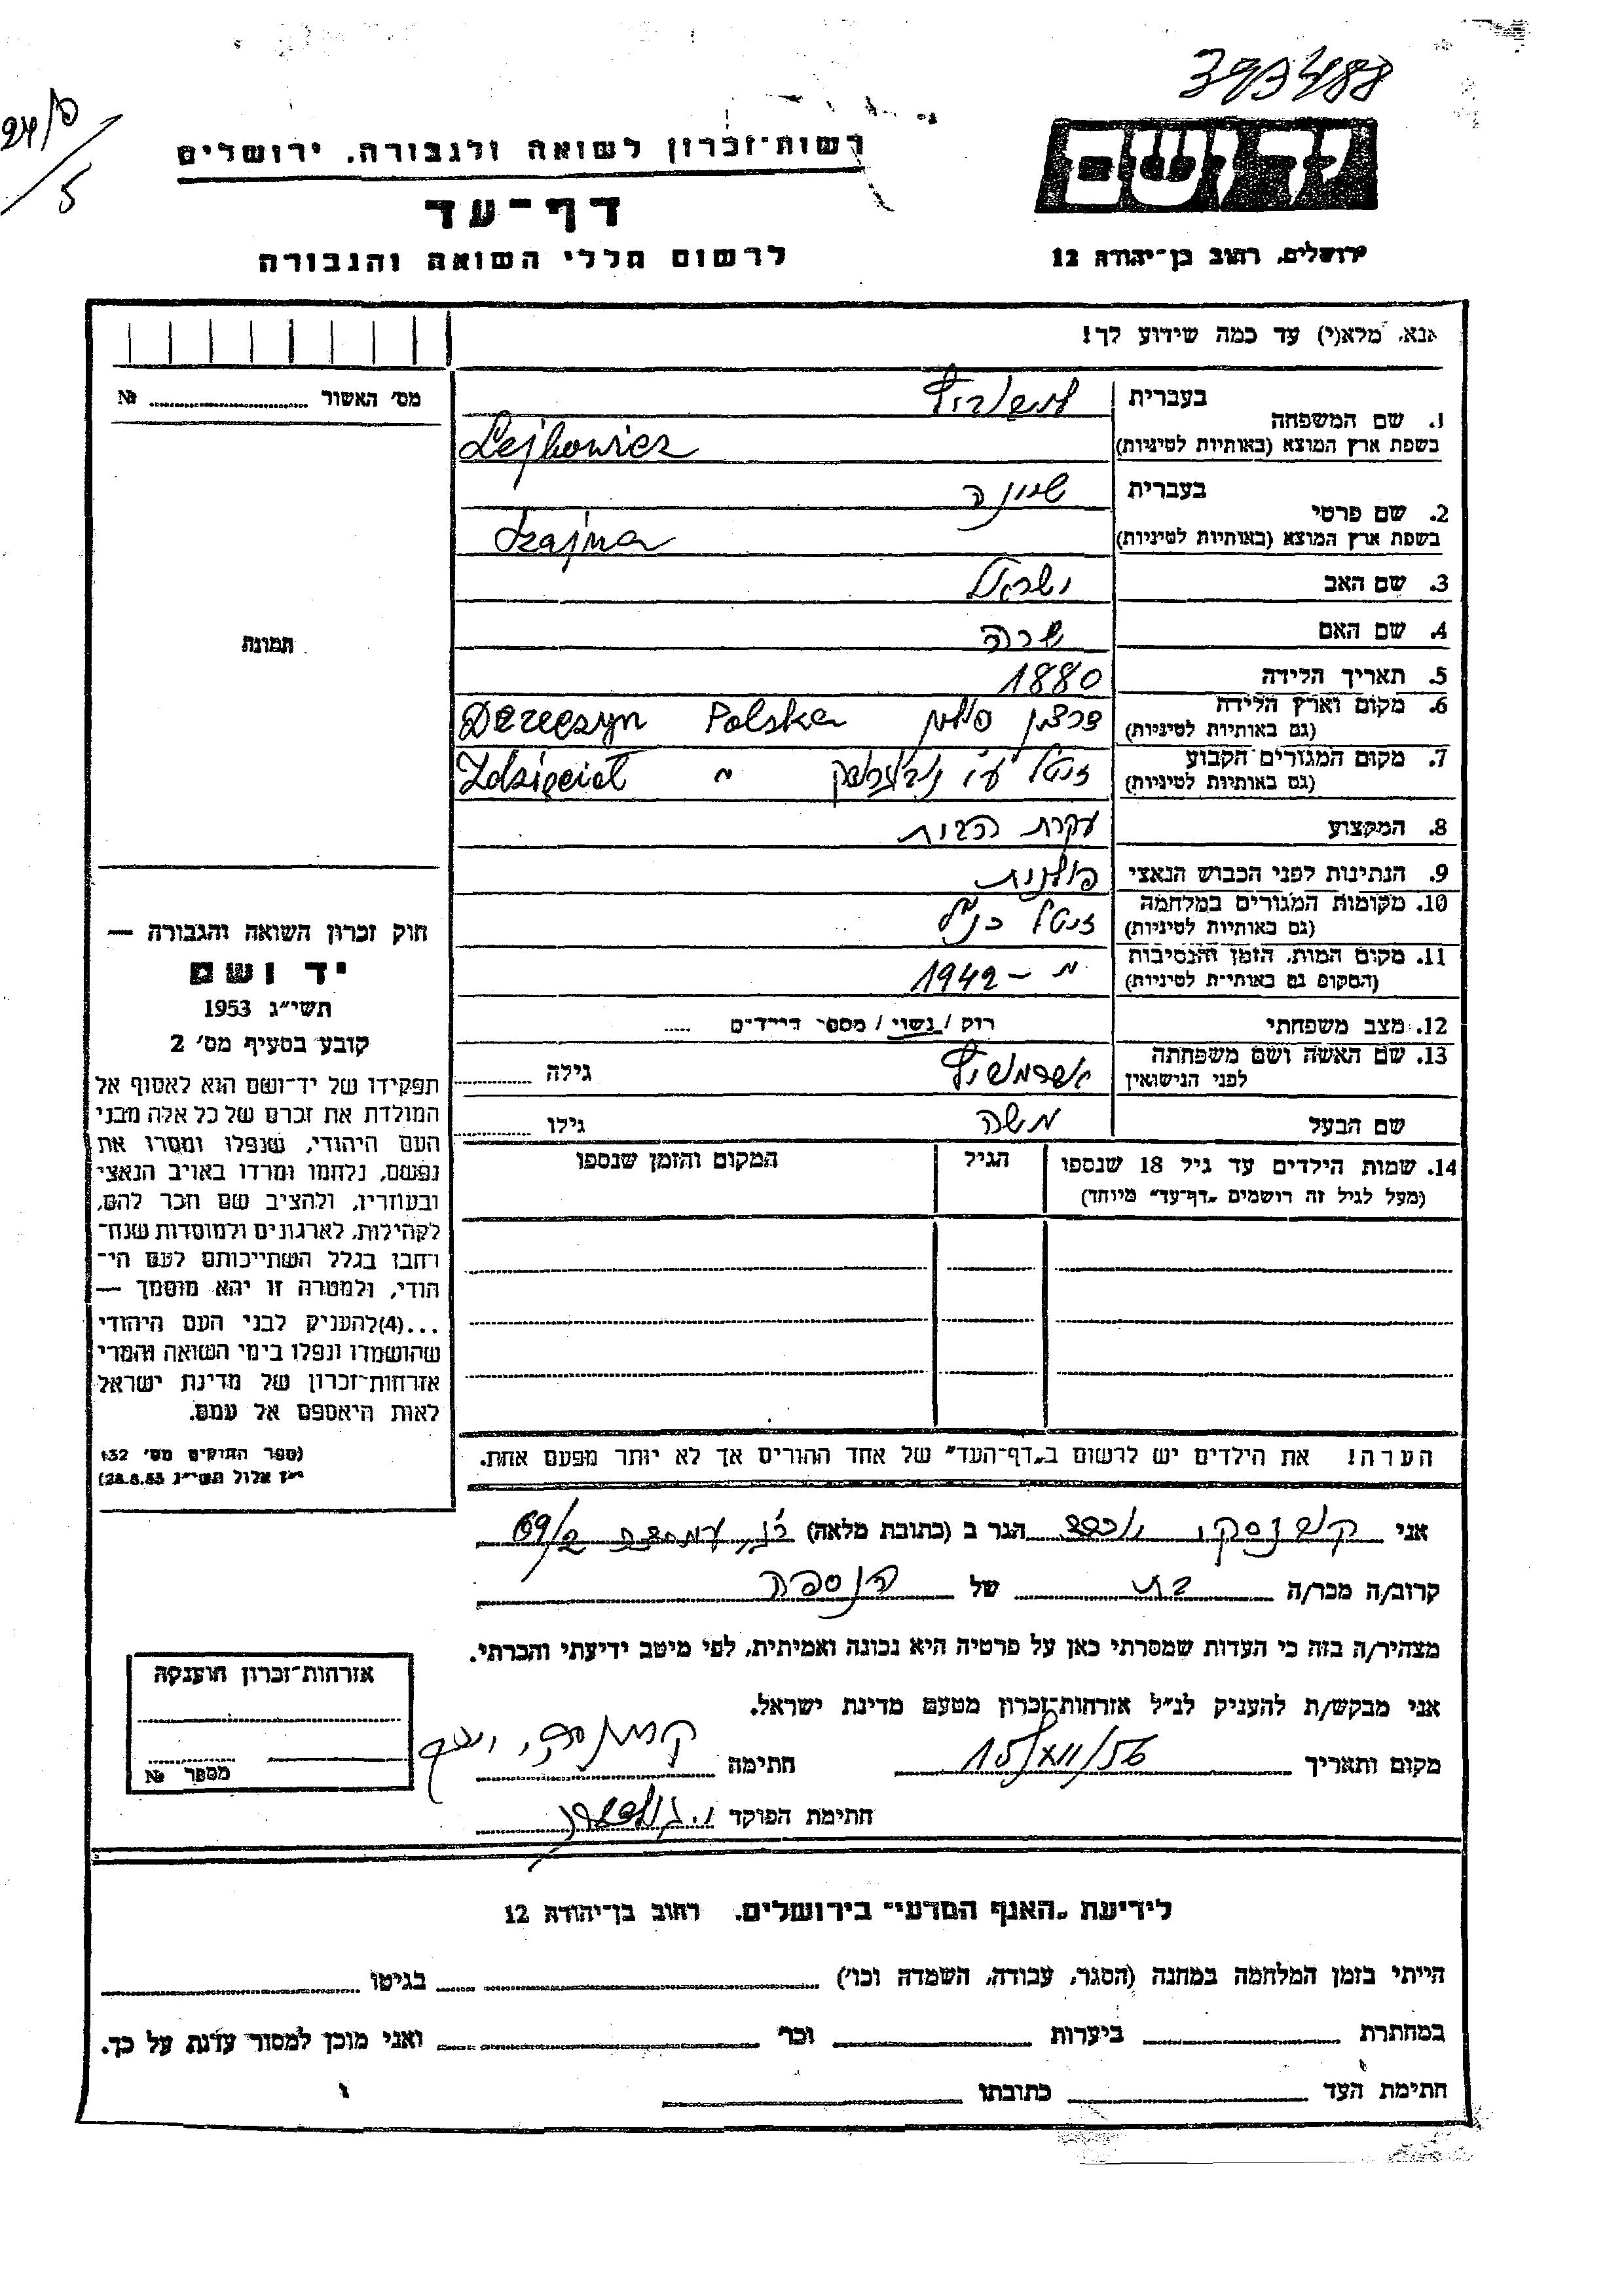 393488
24/5
רשות־זכרון לשואה ולגבורה. ירושלים
דף־עד
לרשום חללי השואה והגבורה
יד ושם
ירושלים, רחוב בן־יהודה 12
אנא, מלא(י) עד כמה שידוע לך!
מס׳ האשור № 
1. שם המשפחה
בעברית לייבוביץ
בשפת ארץ המוצא (באותיות לטיניות) Lejbowicz
2. שם פרטי
בעברית שיינה
בשפת ארץ המוצא (באותיות לטיניות) Szajna
3. שם האב ישראל
4. שם האם שרה
5. תאריך הלידה 1880
6. מקום וארץ הלידה
(גם באותיות לטיניות) דרצין פולין Polska Dereczyn
7. מקום המגורים הקבוע
(גם באותיות לטיניות) זטל ע״י " Zdzięcioł
8. המקצוע עקרת הבית
9. הנתינות לפני הכבוש הנאצי פולנית
10. מקומות המגורים במלחמה
(גם באותיות לטיניות) זטל כנ״ל
11. מקום המות, הזמן והנסיבות
(המקום גם באותיות לטיניות) 1942 –
12. מצב משפחתי רוק / נשוי / מספר הילדים
13. שם האשה ושם משפחתה
לפני הנישואין גילה
שם הבעל משה גילו
14. שמות הילדים עד גיל 18 שנספו
(מעל לגיל זה רושמים „דף־עד" מיוחד)
הגיל
המקום והזמן שנספו
הערה! את הילדים יש לרשום ב„דף־העד" של אחד ההורים אך לא יותר מפעם אחת.
תמונה
חוק זכרון השואה והגבורה —
יד ושם
תשי״ג 1953
קובע בסעיף מס׳ 2
תפקידו של יד־ושם הוא לאסוף אל
המולדת את זכרם של כל אלה מבני
העם היהודי, שנפלו ומסרו את
נפשם, נלחמו ומרדו באויב הנאצי
ובעוזריו, ולהציב שם וזכר להם,
לקהילות, לארגונים ולמוסדות שנח־
רבו בגלל השתייכותם לעם הי־
הודי, ולמטרה זו יהא מוסמך —
...(4)להעניק לבני העם היהודי
שהושמדו ונפלו בימי השואה והמרי
אזרחות־זכרון של מדינת ישראל
לאות היאספם אל עמם.
(ספר החוקים מס׳ 132
י״ז אלול תשי״ג 28.8.53)
אני הגר ב (כתובת מלאה) 69/2
קרוב/ה מכר/ה בת של הנספה
מצהיר/ה בזה כי העדות שמסרתי כאן על פרטיה היא נכונה ואמיתית, לפי מיטב ידיעתי והכרתי.
אני מבקש/ת להעניק לנ״ל אזרחות־זכרון מטעם מדינת ישראל.
מקום ותאריך 15/VII/56 חתימה
חתימת הפוקד
אזרחות־זכרון הוענקה
מספר №
לידיעת „האגף המדעי" בירושלים. רחוב בן־יהודה 12
הייתי בזמן המלחמה במחנה (הסגר, עבודה, השמדה וכו׳) בגיטו
במחתרת ביערות וכו׳ ואני מוכן למסור עדות על כך.
חתימת העד כתובתו